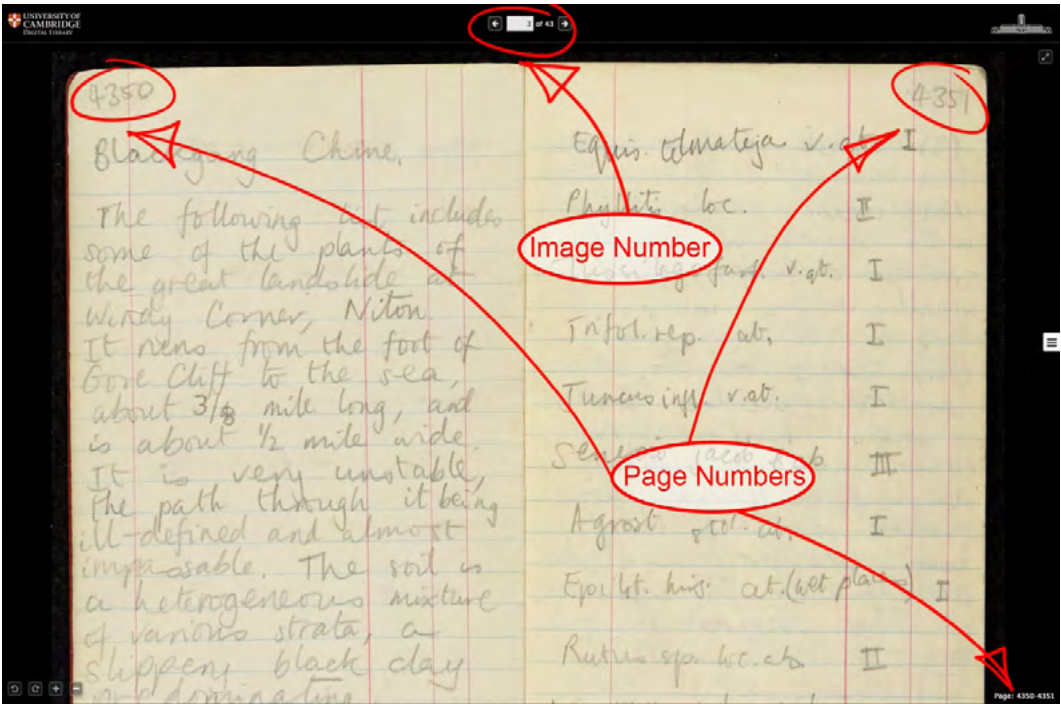 UNIVERSITY OF
CAMBRIDGE
DIGITAL LIBRARY
3 of 43
4350
Blackgang Chine.
The following list includes
some of the plants of
the great landslide at
Windy Corner, Niton
It runs from the foot of
Gore Cliff to the sea,
about 3/8 mile long, and
is about 1/2 mile wide.
It is very unstable,
the path through it being
ill-defined and almost
impassable. The soil is
a heterogeneous mixture
of various strata, a
slippery black clay
predominating
4351
Equis. telmateja v. ab. I
Phyllitis loc. II
Tussilago farf. v. ab. I
Trifol. rep. ab. I
Juncus infl. v. ab. I
Senecio jacob. ab III
Agrost stol. ab. I
Epilob. hirs. ab. (wet places) I
Rubus sp. loc. ab. II
Image Number
Page Numbers
Page: 4350-4351